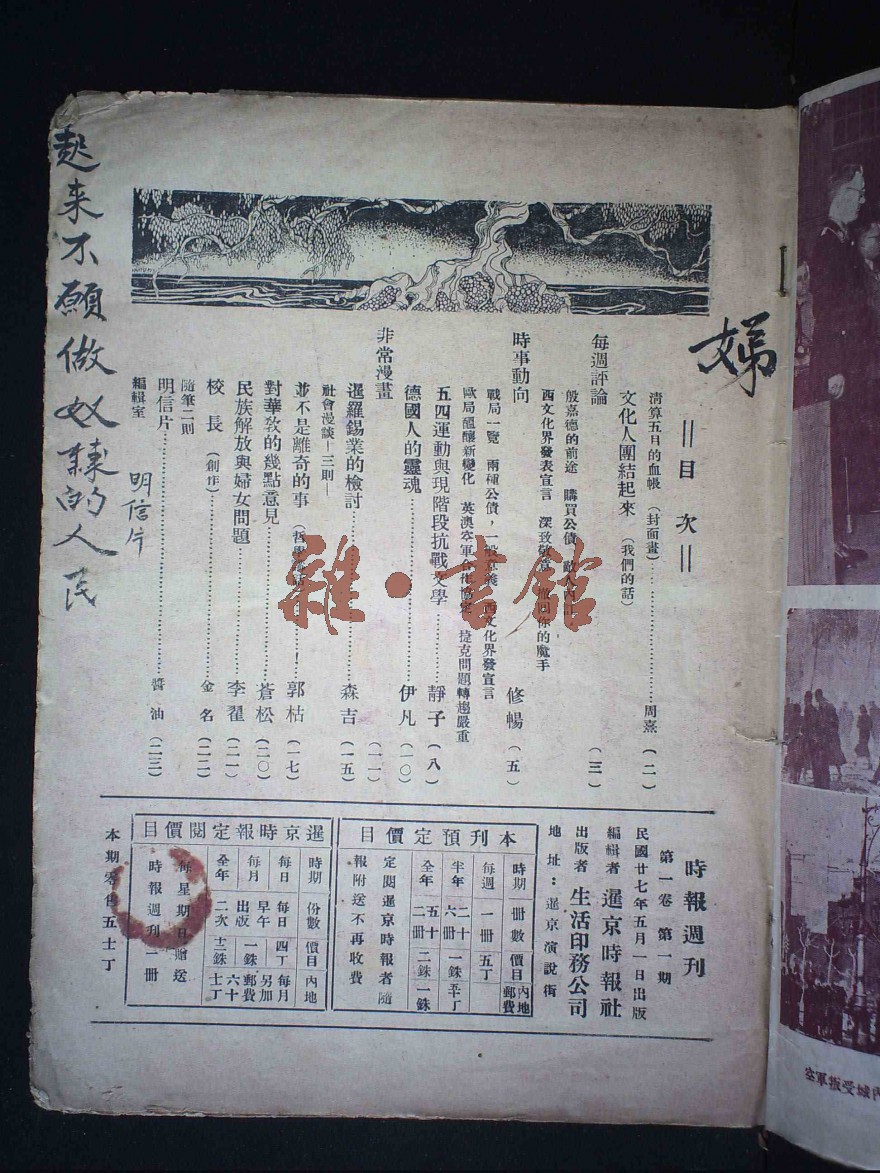 娣
起来不願做奴隸的人民
明信片
‖目 次‖
清算五日的血帳(封面畫)……周熹(二)
文化人團結起來(我們的話)
每週評論(三)
般嘉德的前途 購買公債
西文化界發表宣言 深致敬意 撤回你的魔手
時事動向 修暢(五)
戰局一覽 兩種公債,一般意義 西文化界發宣言
歐局醞釀新變化 英澳空軍合作協定 捷克問題轉趨嚴重
五四運動與現階段抗戰文學……靜子(八)
德國人的靈魂……伊凡(一〇)
非常漫畫(一一)
暹羅錫業的檢討……森吉(一五)
社會漫談—三則—
並不是離奇的事……郭枯(一七)
對華教的幾點意見……蒼松(二〇)
民族解放與婦女問題……李翟(二一)
校長(創作)……金名(二二)
隨筆二則
明信片……醬油(二三)
編輯室
時報週刊
第一卷 第一期
民國廿七年五月一日出版
編輯者 暹京時報社
出版者 生活印務公司
地址:暹京演說街
本刊預定價目
時期 冊數 價目 內地郵費
每週 一冊 五丁
半年 二十六冊 一銖五十丁
全年 五十二冊 二銖 一銖
定閱暹京時報者隨
報附送不再收費
暹京時報定閱價目
時期 份數 價目 內地
每日 每日 四丁 每月
每月 早午 一銖 另加
全年 出版二次 十二銖 郵費六十七丁
每星期日贈送
時報週刊一冊
本期零售五士丁
雜·書館
內城受叛軍空